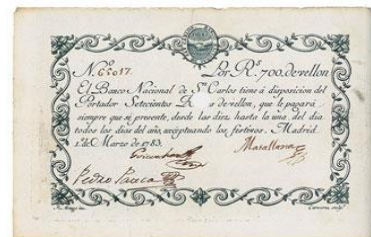 N.º 65017. Por R.s 700. de vellon
El Banco Nacional de S.n Carlos tiene á disposicion del
Portador Setecientos R.s de vellon, que le pagará
siempre que se presente, desde las diez hasta la una del dia
todos los dias del año, exceptuando los festivos. Madrid
1.º de Marzo de 1783.
Pedro